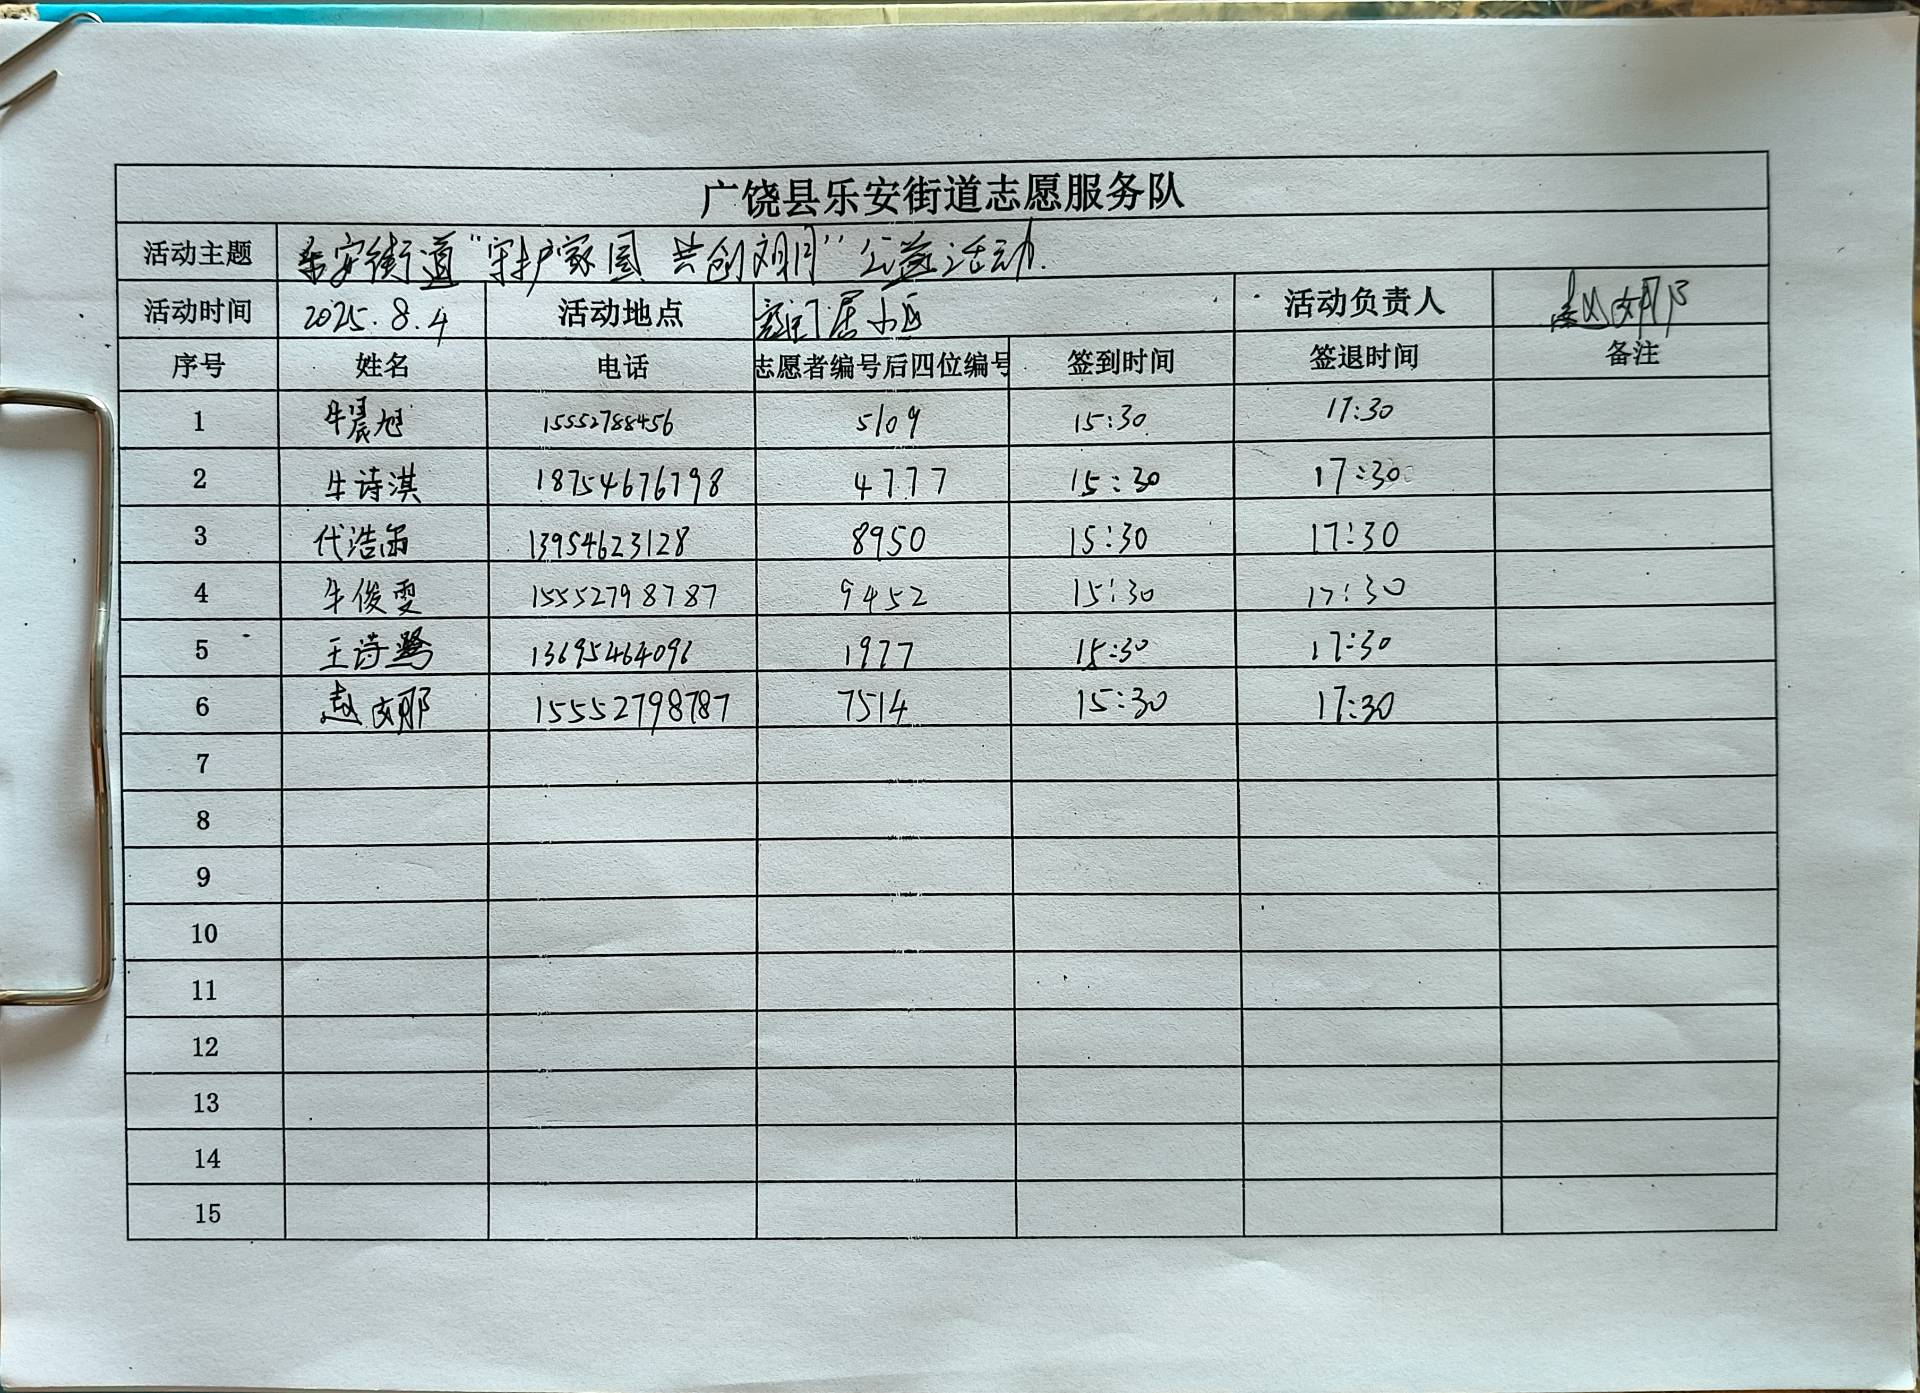 广饶县乐安街道志愿服务队
活动主题 乐安街道“守护家园 共创文明”公益活动.
活动时间 2025.8.4 活动地点 居小区 活动负责人 赵娜
序号 姓名 电话 志愿者编号后四位编号 签到时间 签退时间 备注
1 牛晨旭 15552788456 5109 15:30 17:30
2 牛诗淇 18754676798 4777 15:30 17:30
3 代浩雨 13954623128 8950 15:30 17:30
4 牛俊雯 15552798787 9452 15:30 17:30
5 王诗鹭 13695464096 1977 15:30 17:30
6 赵娜 15552798787 7514 15:30 17:30
7
8
9
10
11
12
13
14
15